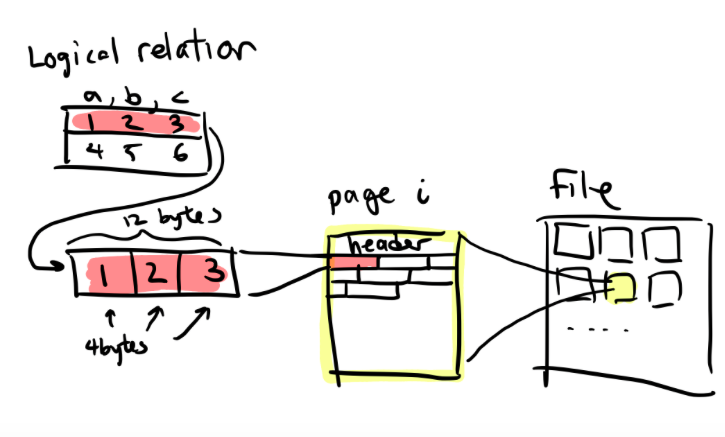 Logical relation
a, b, c
1 2 3
4 5 6
12 bytes
1 2 3
4bytes
page i
header
File
.....